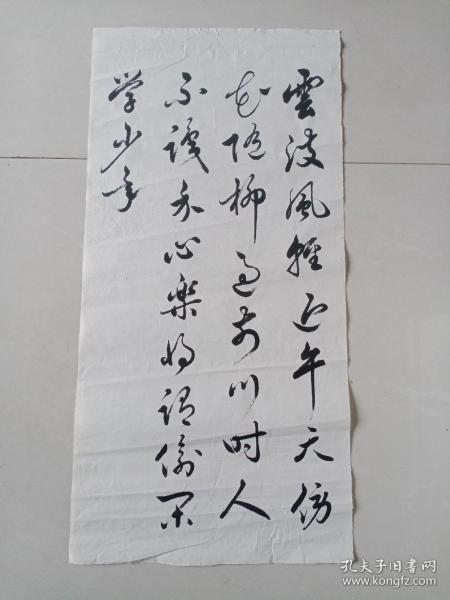 雲淡風輕近午天傍
花随柳過前川时人
不識余心樂将謂偷閑
学少年
孔夫子旧书网
www.kongfz.com